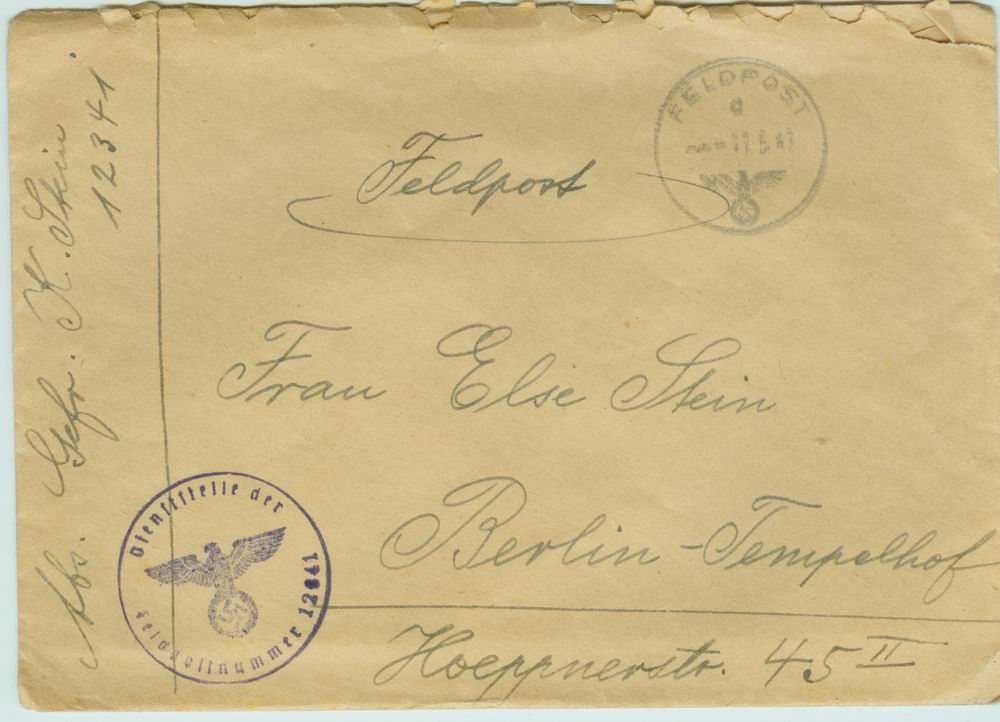 Abs. Gefr. K. Stein
12341
Feldpost
FELDPOST
d
17.5.
Frau Else Stein
Berlin-Tempelhof
Hoeppnerstr. 45 II
Dienststelle der
Feldpostnummer